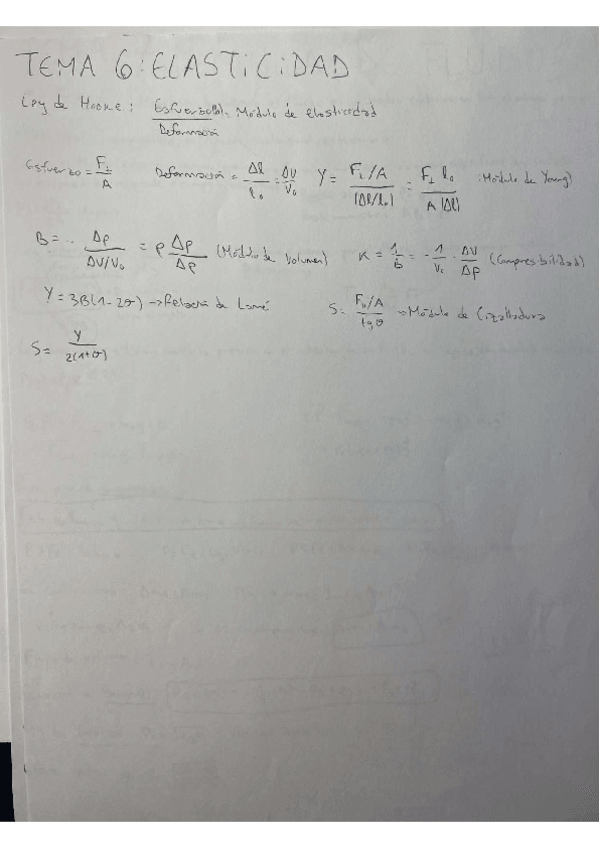 TEMA 6: ELASTICIDAD
Ley de Hooke: Esfuerzo / Deformación = Módulo de elasticidad
Esfuerzo = F⊥/A Deformación = Δl/l₀ = ΔV/V₀ Y = (F⊥/A)/(|Δl/l₀|) = F⊥ l₀/(A |Δl|) : Módulo de Young)
B = - Δp/(ΔV/V₀) = ρ Δp/Δρ (Módulo de Volumen) K = 1/B = - 1/V₀ · ΔV/Δp (Compresibilidad)
Y = 3B(1-2σ) → Relación de Lamé S = (F∥/A)/tgθ → Módulo de Cizalladura
S = Y/2(1+σ)